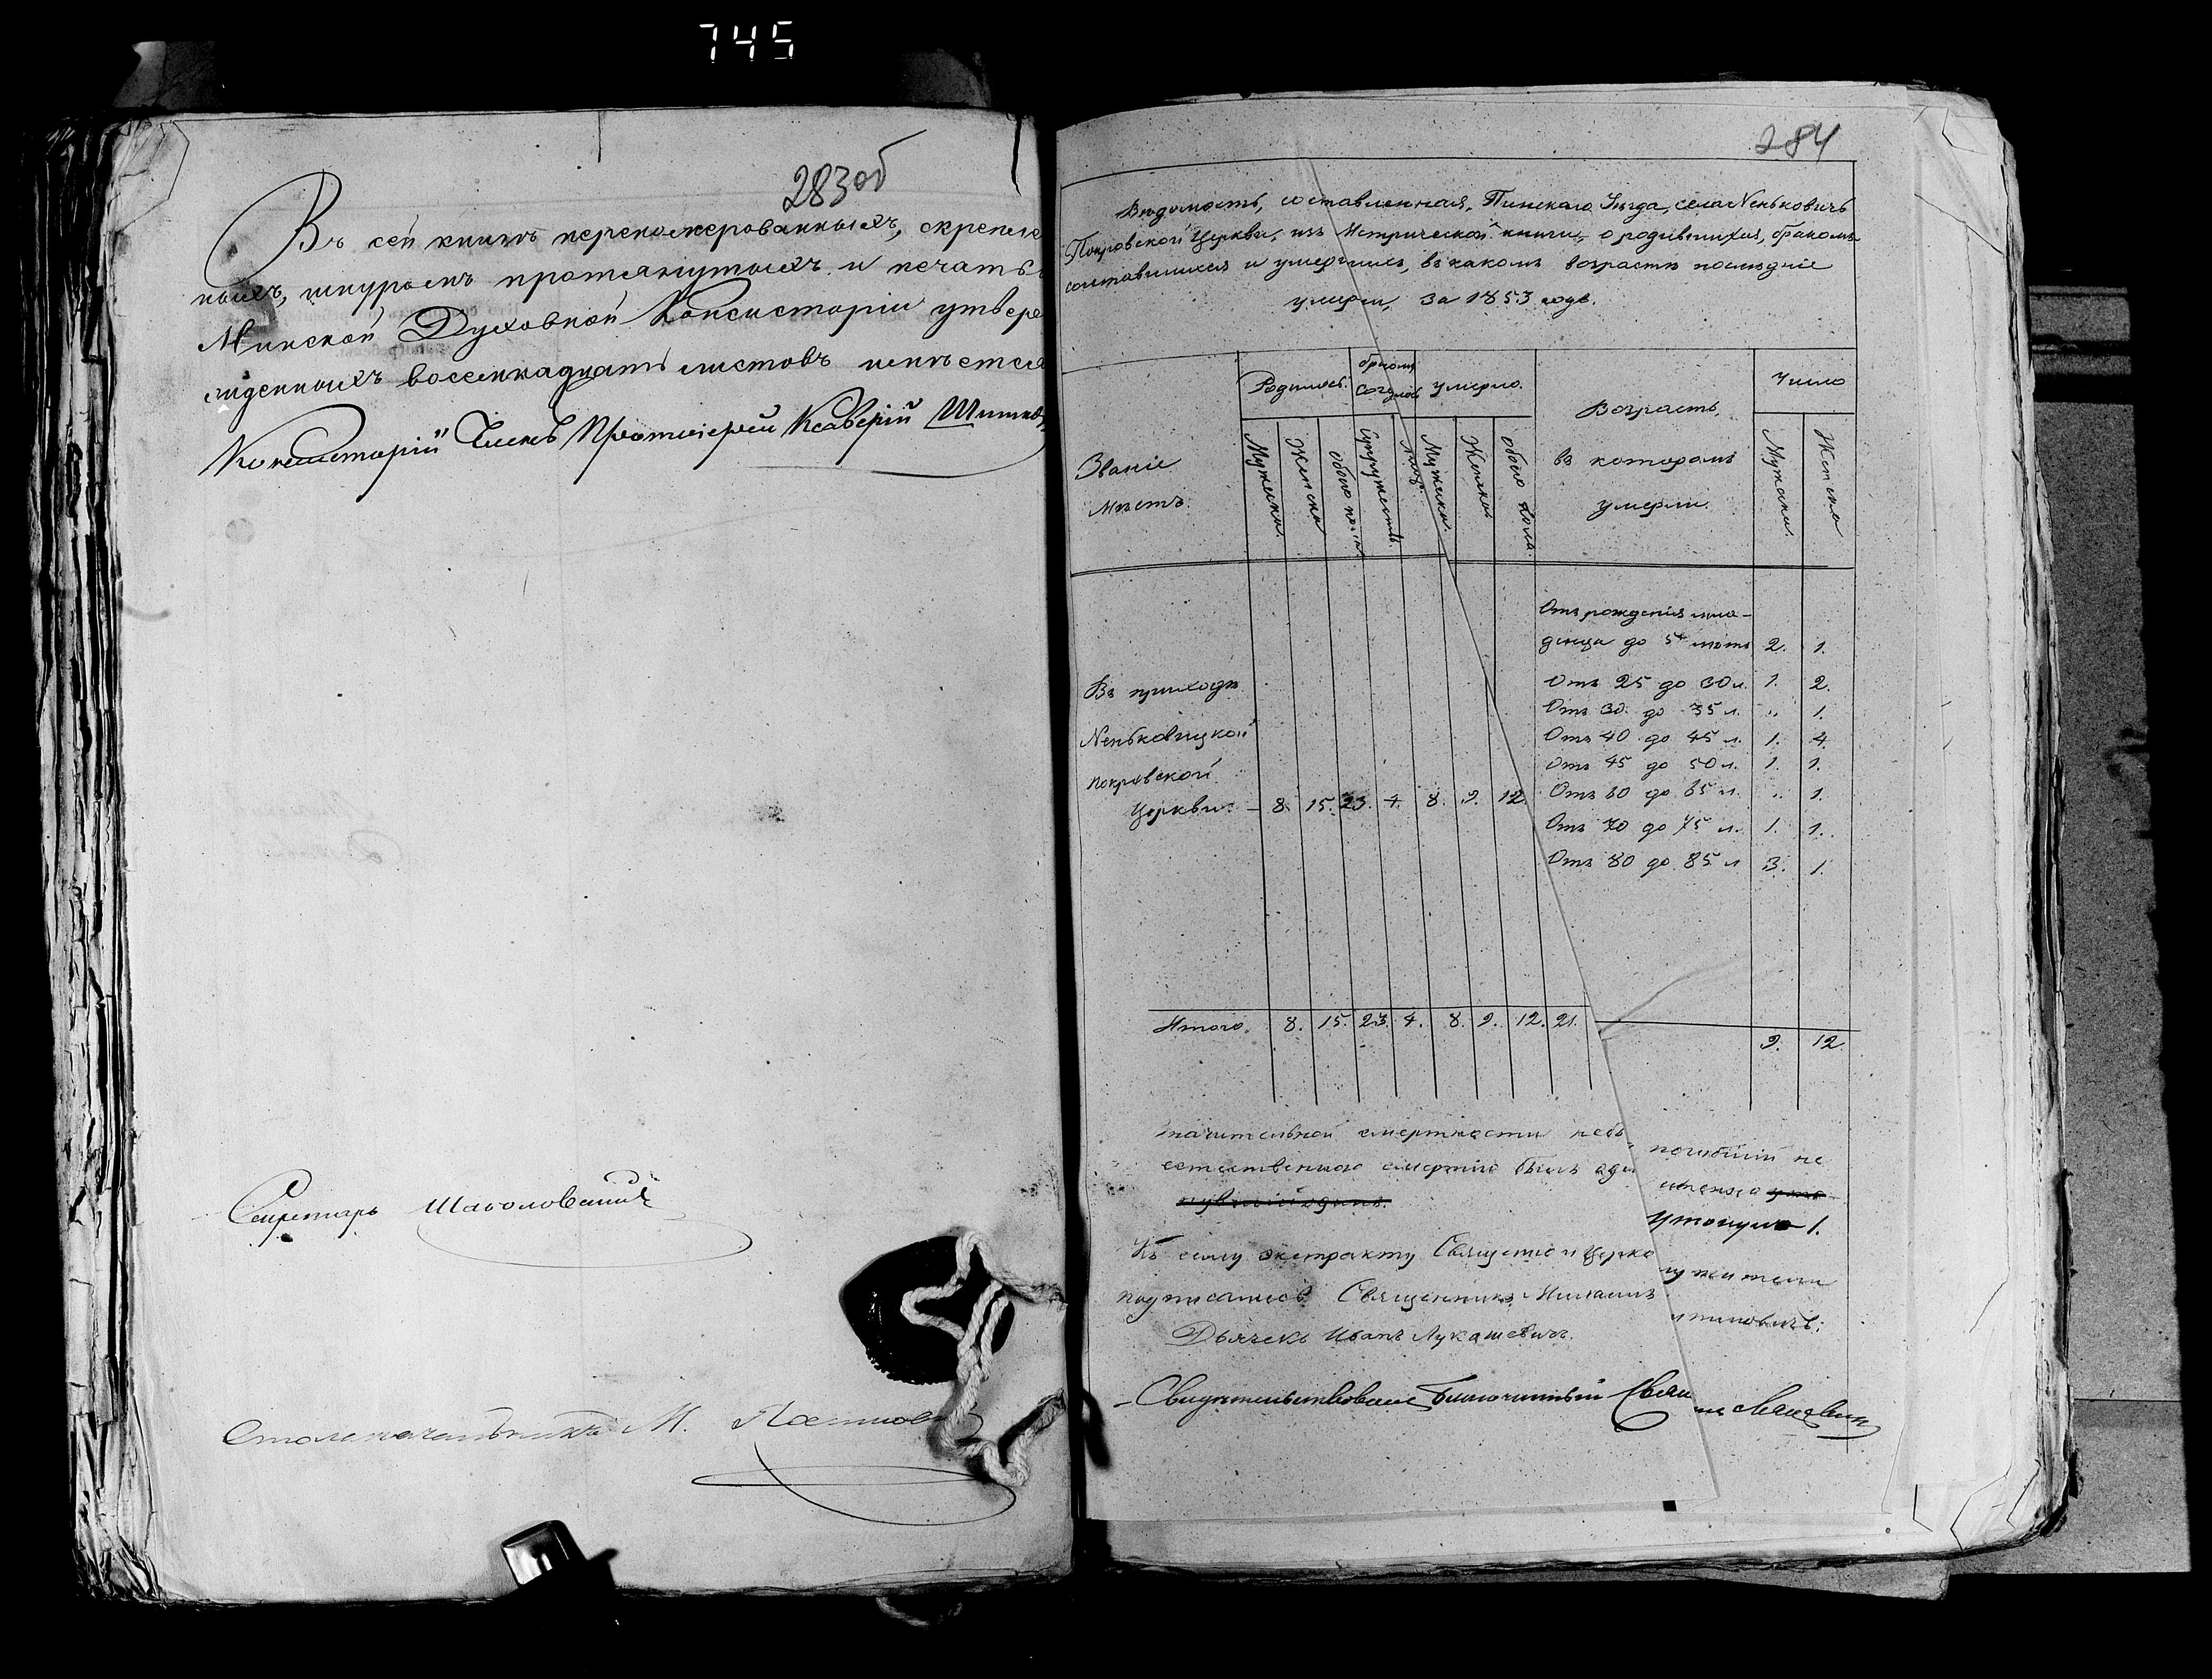 745
283об
Въ сей книгѣ перенумерованныхъ, скреплен
ныхъ, шнуромъ протянутыхъ и печатью
Минской Духовной Консисторіи утверж
жденныхъ восемнадцать листовъ имѣется
Консисторіи Членъ Протоіерей Ксаверій
Секретарь
Столоначальникъ М.
284
Вѣдомость, составленная, Пинскаго Уѣзда, села Неньковичъ
Покровской Церкви, изъ Метрической книги, о родившихся, бракомъ
сочетавшихся и умершихъ, въ какомъ возрастѣ послѣдніе
умерли, за 1853 годъ.
Званіе
мѣстъ.
Родилось.
бракомъ
умерло.
Возрастъ,
въ которомъ
умерли.
Число
Мужеска.
Женска
обоего пола
Супружествъ.
Мужеска.
Женска
обоего пола.
Мужеска.
Женска
Отъ рожденія мла-
денца до 5 лѣтъ 2. 1.
Отъ 25 до 30 л. 1. 2.
Отъ 30 до 35 л. „ 1.
Отъ 40 до 45 л. 1. 4.
Отъ 45 до 50 л. 1. 1.
Отъ 60 до 65 л. „ 1.
Отъ 70 до 75 л. 1. 1.
Отъ 80 до 85 л 3. 1.
Въ приходѣ
Неньковицкой
Покровской
Церкви. – 8. 15. 23. 4. 8. 9. 12.
Итого. 8. 15. 23. 4. 8. 9. 12. 21.
9. 12.
значительной смертности небы
погибшій не
естественною смертію былъ оди
Утонуло 1.
Къ сему экстракту Священно и Церко
служители
подписались Священникъ
Дьячекъ Иванъ Лукашевичъ.
Свидѣтельствовалъ Благочинный